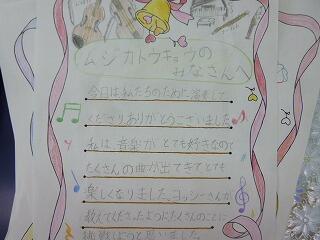 ムジカトウキョウの
みなさんへ
今日は私たちのために演奏して
くださりありがとうございました
私は、音楽が とても好きなので
たくさんの曲が出てきてとても
楽しくなりました。ヨッシーさんが
教えてくださったようにたくさんのことに
挑戦しようと思いました